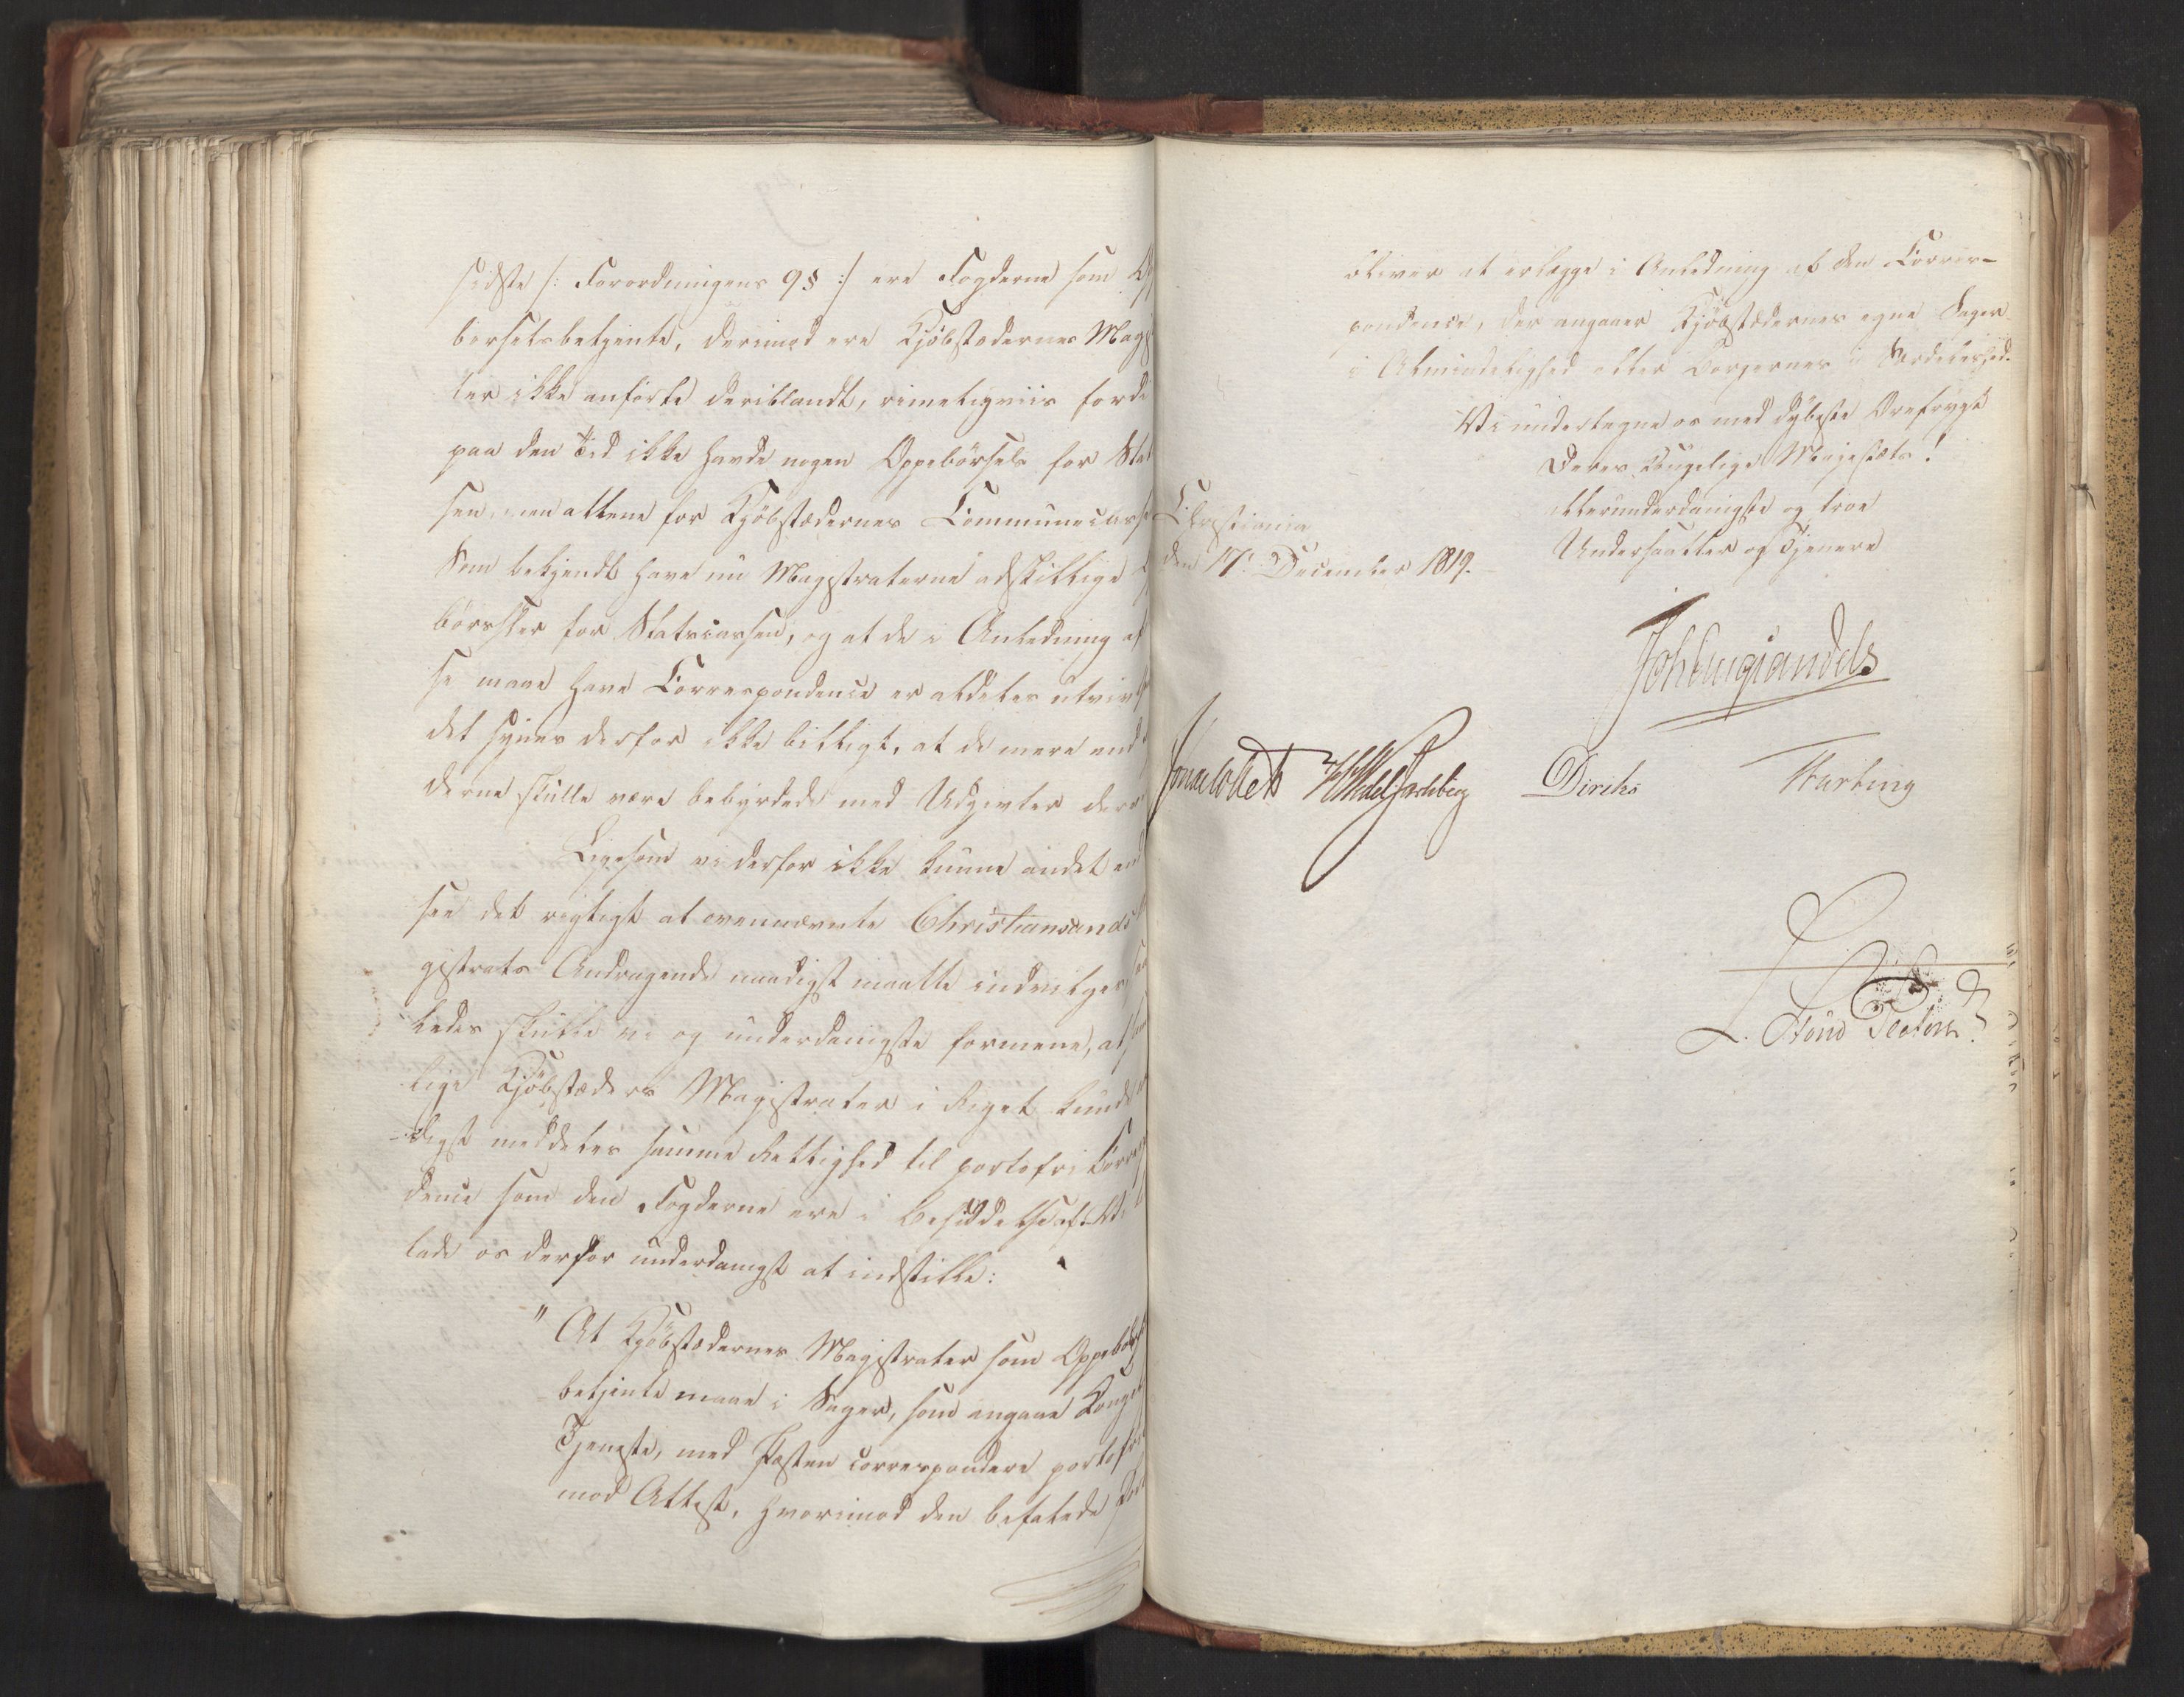 sidste /: Forordningens 9 § :/ ere Fogderne som Op
börselsbetjente, derimod ere Kjöbstædernes Magi
ter ikke anförte deriblandt, rimeligviis fordi
paa den Tid ikke havde nogen Oppebörsel for Stat
sen, men allene for Kjöbstædernes Communecasse
Som bekjendt have nu Magistraterne adskillige
börsler for Statscassen, og at de i Anledning af
se maae have Correspondence er aldeles utviv
det synes derfor ikke billigt, at de mere end
derne skulle være bebyrdede med Udgivter der
Ligesom vi derfor ikke kunne andet end
see det rigtigt at ovennævnte Christiansands
gistrats Andragende naadigst maatte indvilges
ledes skulle vi og underdanigste formene, at
lige Kjöbstæders Magistrater i Riget kunde
digst meddeles samme Rettighed til portofri Corres
dence som den Fogderne ere i Besiddelse af. Vi
lade os derfor underdanigst at indstille:
" At Kjöbstædernes Magistrater som Oppebörsels
betjente maae i Sager, som angaae Konge
Tjeneste, med Posten correspondere portofrit
mod Attest, hvorimod den befalede Por
bliver at erlægge i Anledning af den Corres-
pondence, der angaaer Kjöbstædernes egne Sager
i Almindelighed eller Borgernes i Særdeleshed.
Vi undertegne os med dybeste Ærefrygt
Deres Kongelige Majestæts!
allerunderdanigste og troe
Undersaatter og Tjenere
Christiania
den 17. December 1819.
Jonas Collett
Diriks
Hartvig